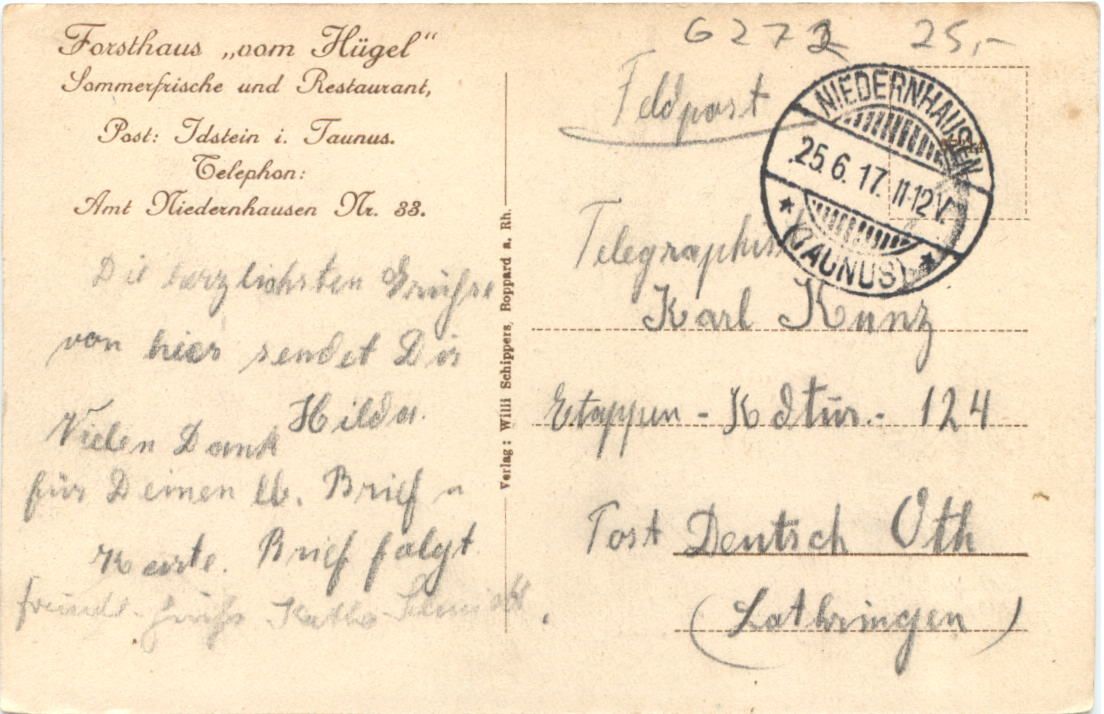 Forsthaus „vom Hügel“
Sommerfrische und Restaurant,
Post: Idstein i. Taunus.
Telephon:
Amt Niedernhausen Nr. 33.
Die herzlichsten Grüsse
von hier sendet Dir
Hilda.
Vielen Dank
für Deinen lb. Brief u
Karte. Brief folgt
Verlag: Willi Schippers, Boppard a. Rh.
G 272 25,-
Feldpost
NIEDERNHAUSEN
25.6.17. 11-12 V.
* (TAUNUS) *
Telegraphist
Karl Kunz
Etappen-Kdtur.- 124
Post Deutsch Oth
(Lothringen)